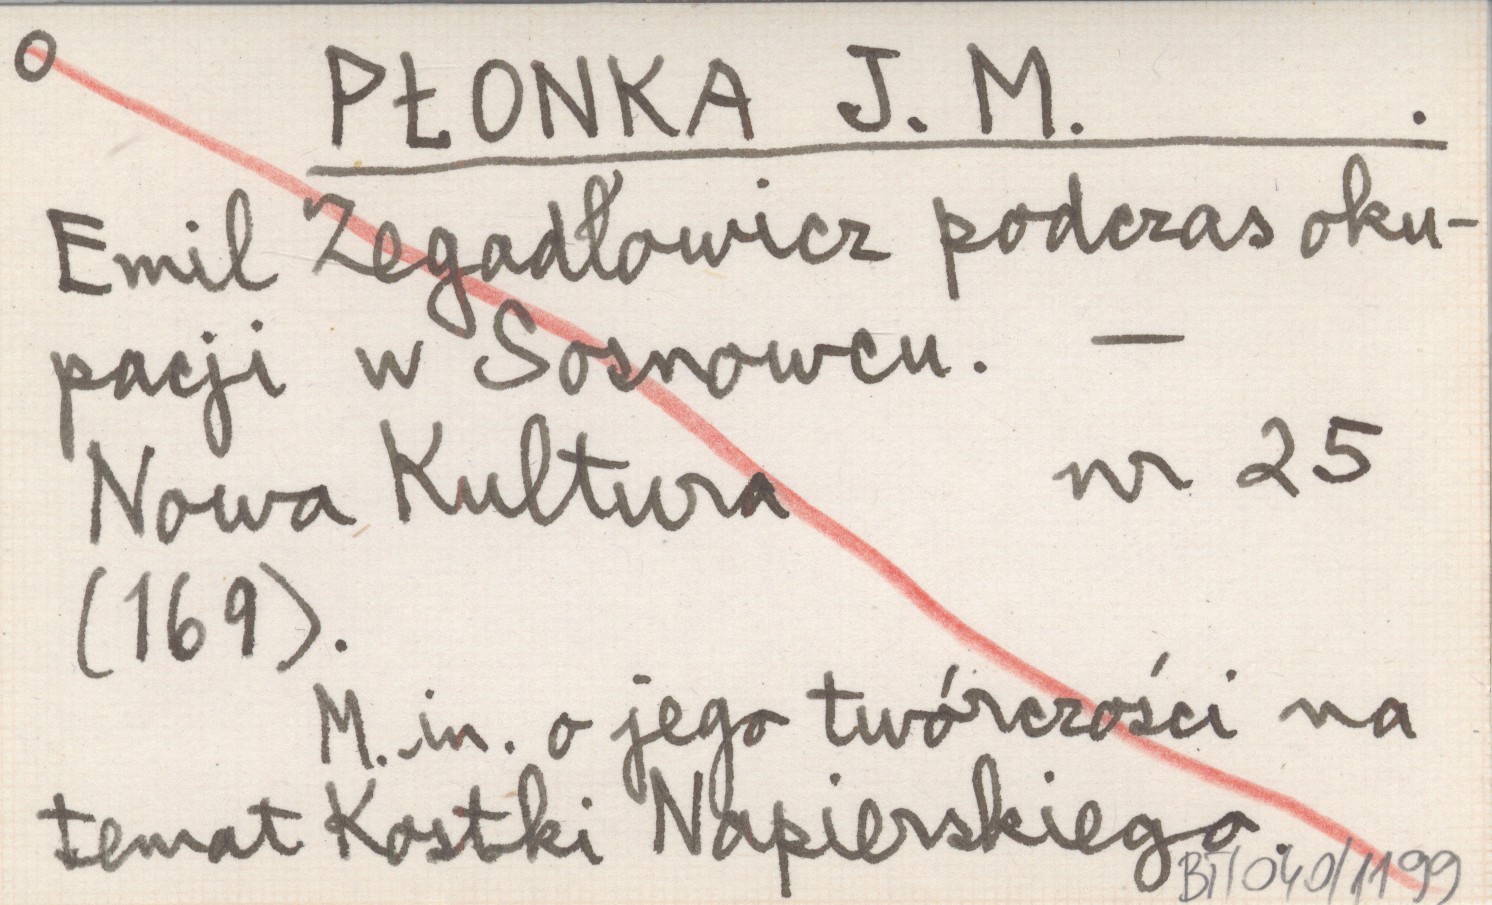 O PŁONKA J. M. .
Emil Zegadłowicz podczas oku-
pacji w Sosnowcu. —
Nowa Kultura nr 25
(169).
M. in. o jego twórczości na
temat Kostki Napierskiego.
BT/040/1199